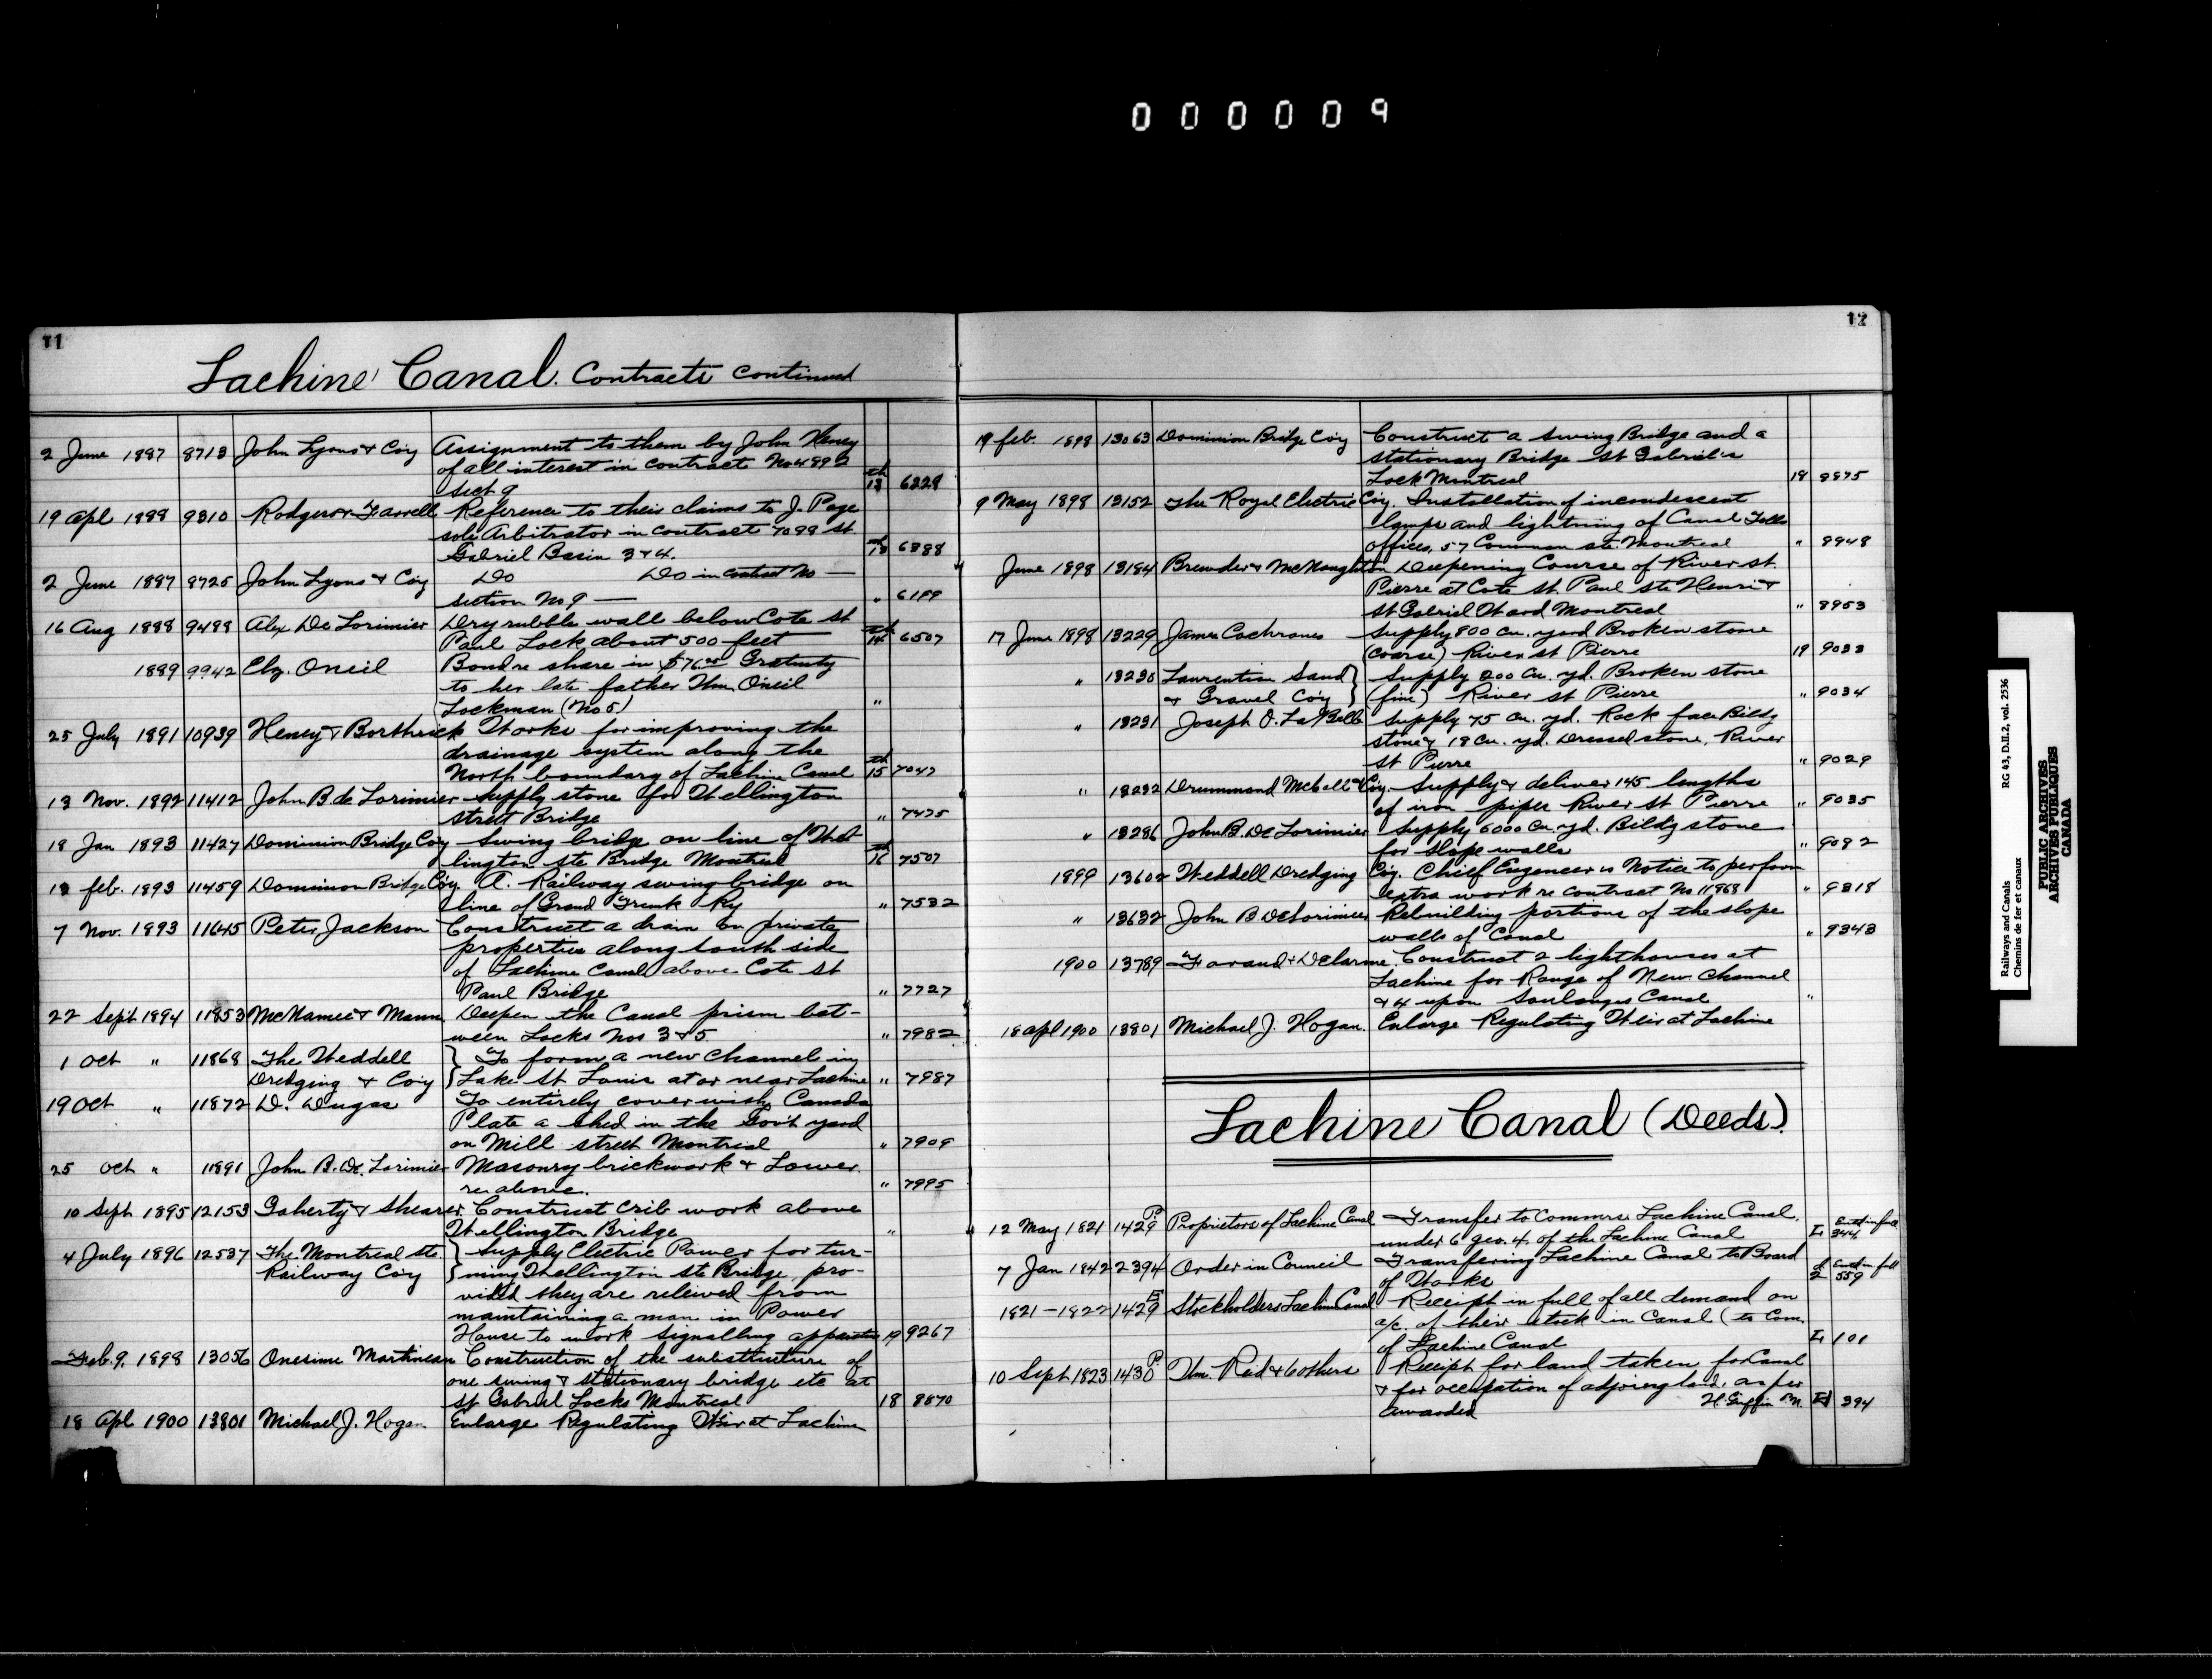 000009
11
Lachine Canal. Contracts continued
2 June 1887 8713 John Lyons & Coy Assignment to them by John Heney
of all interest in contract No 4892
sect 9 13 6229
19 apl 1888 9310 Rodgers & Farrell Reference to their claims to J. Page
sole Arbitrator in contract 7099 St.
Gabriel Basin 3 & 4. 6388
2 June 1887 8725 John Lyons & Coy Do Do in contract No —
section No 9 — " 6199
16 Aug 1888 9488 Alex De Lorimier Dry rubble wall below Cote St
Paul Lock about 500 feet 14 6507
1889 9942 Elz. Oneil Bond re share in $76.00 Gratuity
to her late father Thm. O'neil
Lockman (No 5) "
25 July 1891 10939 Heney & Borthwick Works for improving the
drainage system along the
North boundary of Lachine Canal 15 7047
13 Nov. 1892 11412 John B de Lorimier Supply stone for Wellington
street Bridge " 7475
18 Jan 1893 11427 Dominion Bridge Coy Swing bridge on line of Wel-
lington ste Bridge Montreal 16 7507
18 feb. 1893 11459 Dominion Bridge Coy A. Railway swing bridge on
line of Grand Trunk Ry " 7532
7 Nov. 1893 11645 Peter Jackson Construct a drain on private
properties along south side
of Lachine Canal above Cote St
Paul Bridge " 7727
22 Sept 1894 11853 McNamee & Mann Deepen the Canal prism bet-
ween Locks Nos 3 & 5 " 7982
1 Oct " 11868 The Weddell } To form a new channel in
Dredging & Coy } Lake St Louis at or near Lachine " 7987
19 Oct " 11872 D. Dugas To entirely cover with Canada
Plate a shed in the Gov't yard
on Mill street Montreal " 7909
25 Oct " 11891 John B. De Lorimier Masonry brickwork & Lower
re above. " 7995
10 Sept 1895 12153 Gaherty & Shearer Construct crib work above
Wellington Bridge "
4 July 1896 12537 The Montreal St. } Supply Electric Power for tur-
Railway Coy } ning Wellington ste Bridge, pro-
vided they are releived from
maintaining a man in Power
House to work signalling apparatus 19 9267
Feb. 9. 1898 13056 Onesime Martineau Construction of the substructure of
one swing & stationary bridge etc at
St Gabriel Locks Montreal 18 8870
18 Apl 1900 13801 Michael J. Hogan Enlarge Regulating Weir at Lachine
12
19 feb. 1898 13063 Dominion Bridge Coy Construct a Swing Bridge and a
stationary Bridge St Gabriel's
Lock Montreal 18 8875
9 May 1898 13152 The Royal Electric Coy. Installation of incandescent
lamps and lightning of Canal Tolls
offices, 57 Common ste. Montreal " 8948
June 1898 13184 Brewder & McNaughton Deepening Course of River St.
Pierre at Cote St. Paul Ste Henri &
St Gabriel Ward Montreal " 8953
17 June 1898 13229 James Cochrane Supply 800 cu. yard Broken stone
(coarse) River St Pierre 19 9033
" 13230 Laurentian Sand } Supply 200 cu. yd. Broken stone
& Gravel Coy } (fine) River St Pierre " 9034
" 13231 Joseph O. LaBelle Supply 75 cu. yd. Rock face Bildg
stone & 18 cu. yd. Dressed stone, River
St Pierre " 9029
" 13232 Drummond McCall & Coy. Supply & deliver 145 lengths
of iron pipes River St Pierre " 9035
" 13286 John B. De Lorimier Supply 6000 cu. yd. Bildg stone
for slope walls " 9092
1899 13602 Weddell Dredging Coy. Chief Engeneer's Notice to perform
extra work re contract No 11868 " 9318
" 13632 John B DeLorimier Rebuilding portions of the slope
walls of Canal " 9343
1900 13789 Farand & Delorme Construct 2 lighthouses at
Lachine for Range of New Channel
& 4 upon Soulanges Canal "
18 apl 1900 13801 Michael J. Hogan. Enlarge Regulating Weir at Lachine
Lachine Canal (Deeds).
12 May 1821 1429 P. Proprietors of Lachine Canal Transfer to Commrs Lachine Canal.
under 6 Geo. 4. of the Lachine Canal 344
7 Jan 1842 2394 Order in Council Transfering Lachine Canal to Board
of Works 2 559
1821-1822 1429 E Stockholders Lachine Canal Receipt in full of all demand on
a/c. of their stock in Canal (to Com.
of Lachine Canal 101
10 Sept 1823 1430 P. Thm. Reid & 6 others Receipt for land taken for Canal
& for occupation of adjoining land, as per
awarded H. Griffin P.N. 394
Railways and Canals RG 43, D.II.2, vol. 2536
Chemins de fer et canaux
PUBLIC ARCHIVES
ARCHIVES PUBLIQUES
CANADA